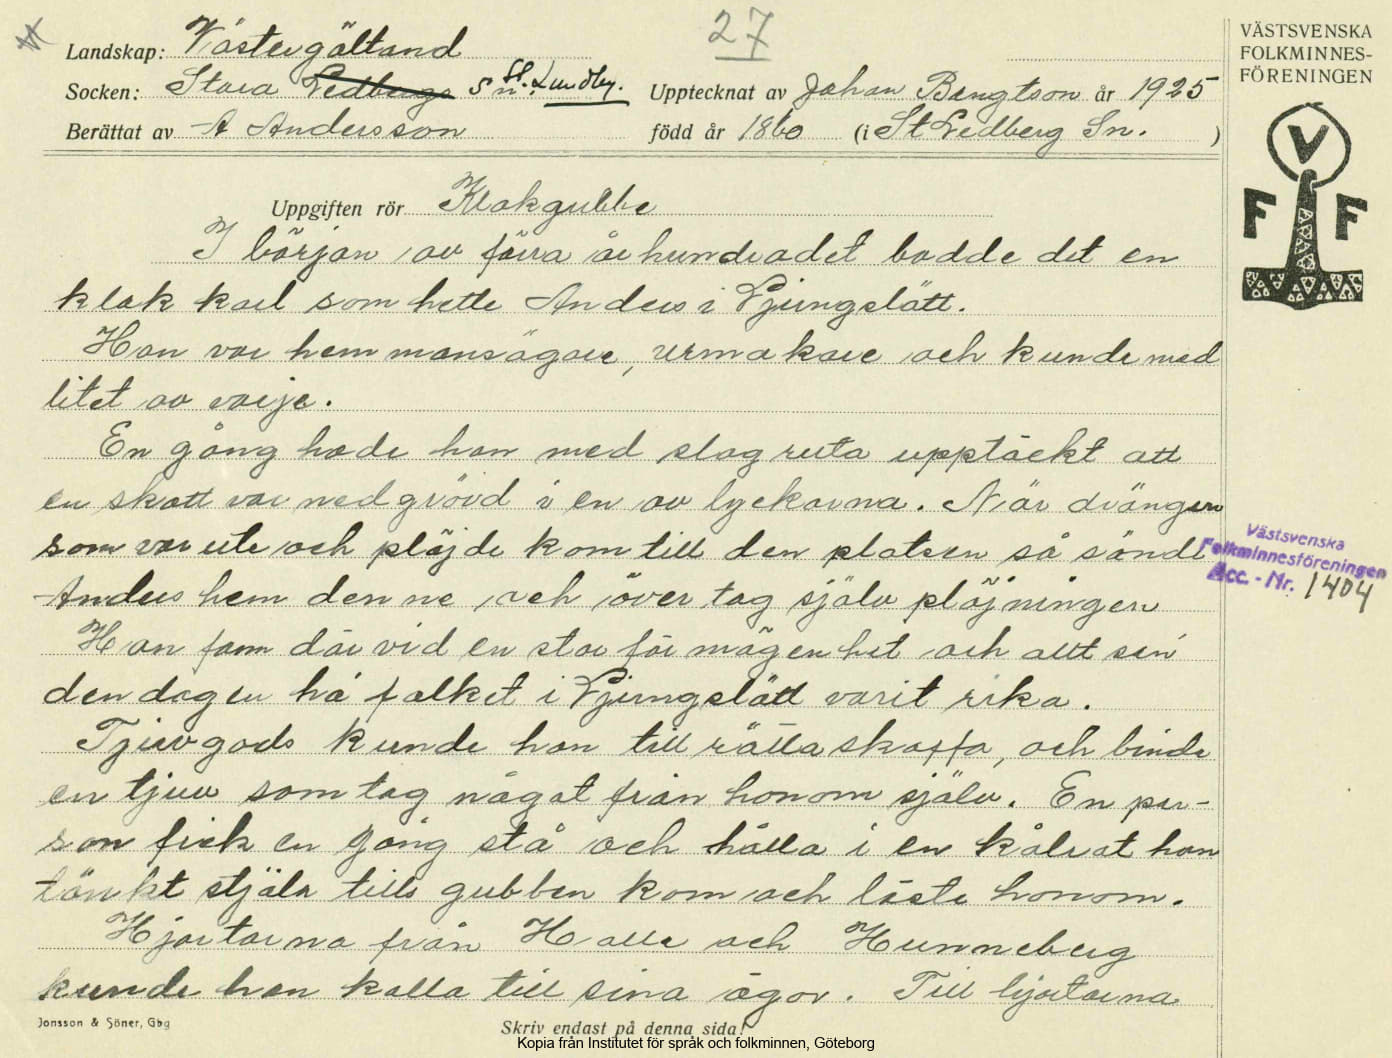 27
VÄSTSVENSKA
FOLKMINNES-
FÖRENINGEN
Landskap: Västergötland
Socken: Stora Ledbergs Sn. St. Lundby. Upptecknat av Johan Bengtson år 1925
Berättat av A Andersson född år 1860 (i St Ledberg Sn. )
V
F F
Uppgiften rör Klokgubbe
I början av förra århundradet bodde det en
klok karl som hette Anders i Ljungslätt.
Han var hemmansägare, urmakare och kunde med
litet av varje.
En gång hade han med slagruta upptäckt att
en skatt var nedgrävd i en av lyckorna. När drängen
som var ute och plöjde kom till den platsen så sände
Anders hem denne och övertog själv plöjningen
Han fann därvid en stor förmögenhet och allt sen
den dagen ha folket i Ljungslätt varit rika.
Tjuvgods kunde han tillrättaskaffa, och binda
en tjuv som tog något från honom själv. En per-
son fick en gång stå och hålla i en kålrot han
tänkt stjäla tills gubben kom och löste honom.
Hjortarna från Halle och Hunneberg
kunde han kalla till sina ägor. Till hjortarna
Västsvenska
Folkminnesföreningen
Acc. - Nr. 1404
Jonsson & Söner, Gbg
Skriv endast på denna sida!
Kopia från Institutet för språk och folkminnen, Göteborg